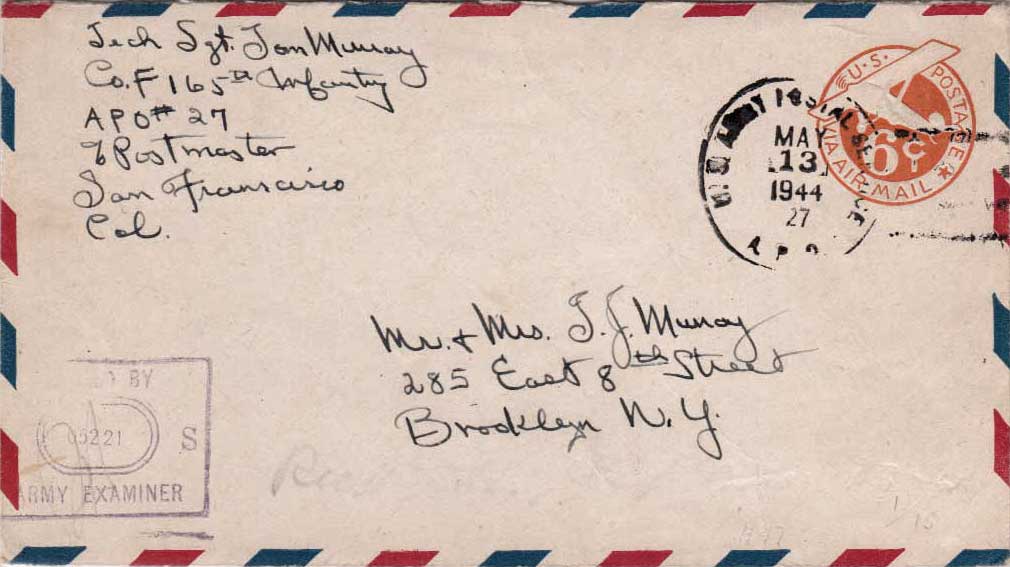 Tech Sgt. Tom Murray
Co. F 165th Infantry
APO # 27
% Postmaster
San Francisco
Cal.
U.S. POSTAGE
6¢
VIA AIR MAIL
U.S. ARMY POSTAL SERVICE
MAY
13
1944
27
A.P.O.
Mr. & Mrs. T. J. Murray
285 East 8th Street
Brooklyn N.Y.
BY
05221
S
ARMY EXAMINER
1/15